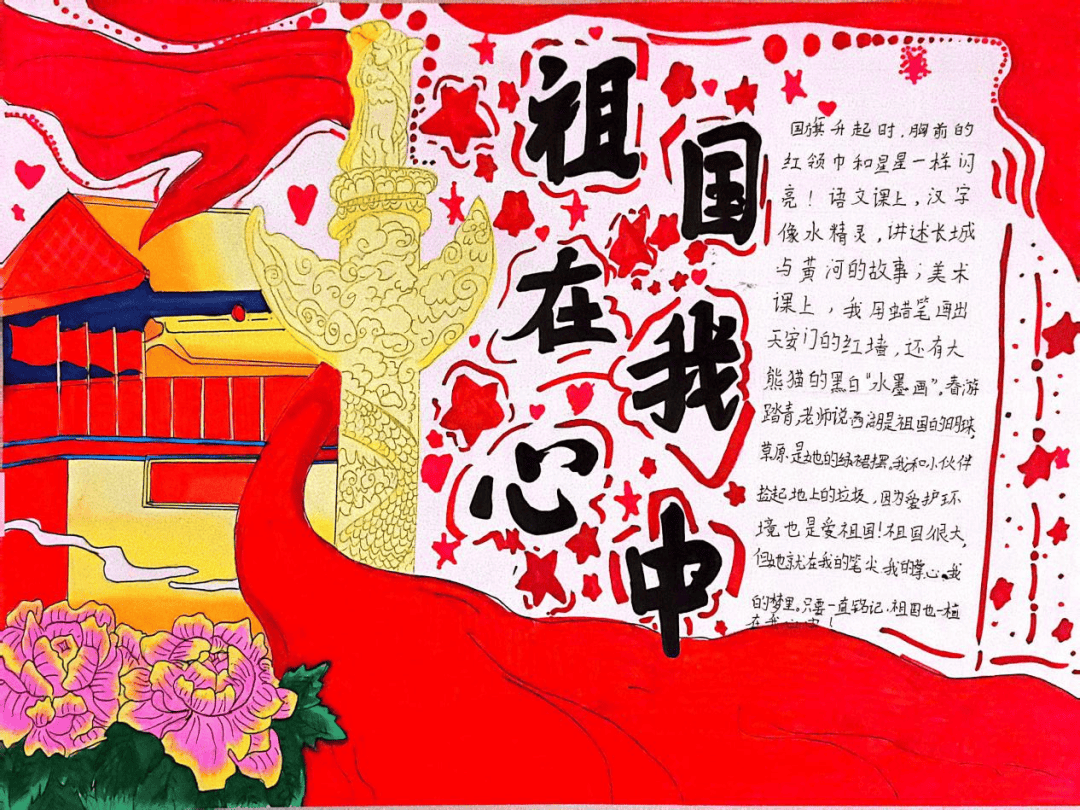 祖国
在我
心中
国旗升起时，胸前的
红领巾和星星一样闪
亮！语文课上，汉字
像水精灵，讲述长城
与黄河的故事；美术
课上，我用蜡笔画出
天安门的红墙，还有大
熊猫的黑白“水墨画”。春游
踏青，老师说西湖是祖国的明珠，
草原是她的绿裙摆。我和小伙伴
捡起地上的垃圾，因为爱护环
境也是爱祖国！祖国很大，
但她就在我的笔尖 我的掌心。我
的梦里。只要一直铭记，祖国也一直
在我心中！